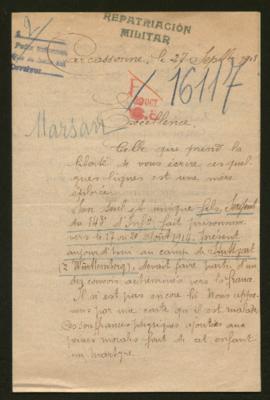 REPATRIACIÓN
MILITAR
Carcassonne, le 27 Septbre
16117
Marsan
Excellence
Celle que prend la
liberté de vous écrire ces quel-
ques lignes est une mère
éplorée.
Son seul et unique fils, Sergent
du 343e d'Infie fait prisonnier
vers le 17 ou 20 Août 1914. Présent
aujourd'hui au camp de Stuttgart
(Wurttemberg), devait faire partie d'un
des convois acheminés vers la France
Il n'est pas encore là. Nous appre-
nons par une carte qu'il est malade
Ces souffrances physiques ajoutées aux
peines morales font de cet enfant
un martyre.